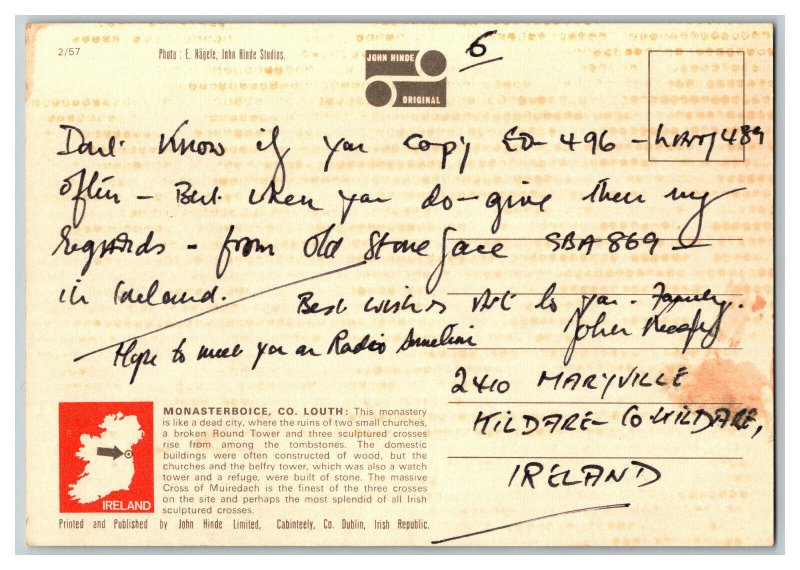 2/57
Photo : E. Nägele, John Hinde Studios.
JOHN HINDE
ORIGINAL
6
Dont Know if you copy ED-496 - 489
often - But when you do - give them my
Regards - from Old Stone face SBA869 -
in Ireland.
Best wishes to you - Family.
Hope to meet you on Radio Sometime
John
2410 MARYVILLE
KILDARE - CO-KILDARE,
IRELAND
IRELAND
MONASTERBOICE, CO. LOUTH: This monastery
is like a dead city, where the ruins of two small churches,
a broken Round Tower and three sculptured crosses
rise from among the tombstones. The domestic
buildings were often constructed of wood, but the
churches and the belfry tower, which was also a watch
tower and a refuge, were built of stone. The massive
Cross of Muiredach is the finest of the three crosses
on the site and perhaps the most splendid of all Irish
sculptured crosses.
Printed and Published by John Hinde Limited, Cabinteely, Co. Dublin, Irish Republic.